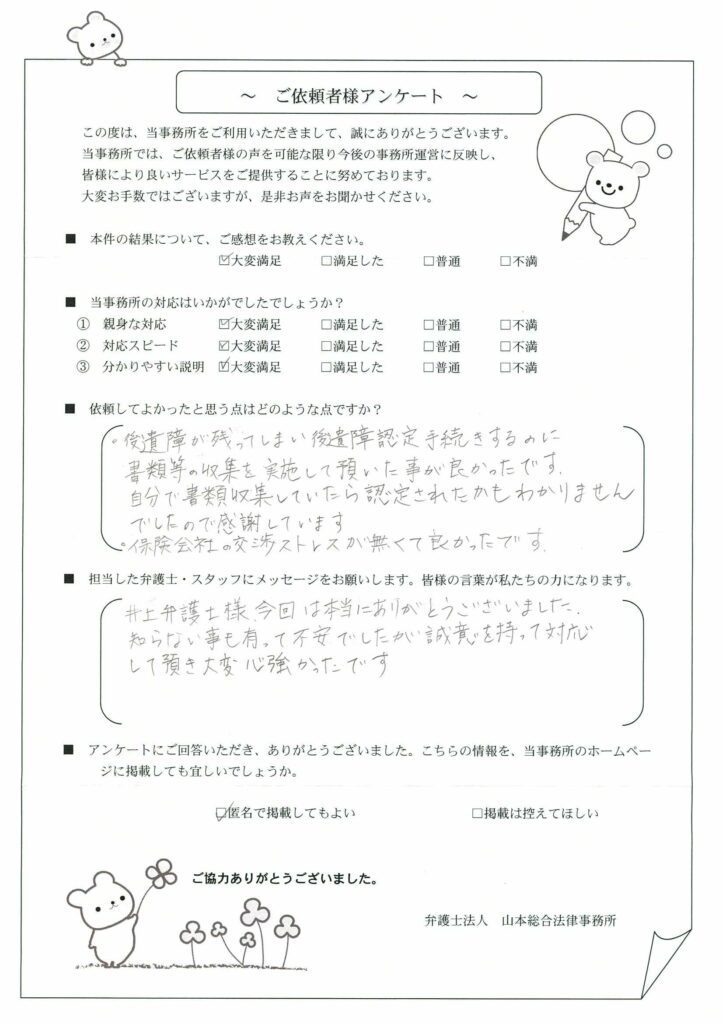 ~ ご依頼者様アンケート ~
この度は、当事務所をご利用いただきまして、誠にありがとうございます。
当事務所では、ご依頼者様の声を可能な限り今後の事務所運営に反映し、
皆様により良いサービスをご提供することに努めております。
大変お手数ではございますが、是非お声をお聞かせください。
■ 本件の結果について、ご感想をお教えください。
☑大変満足 □満足した □普通 □不満
■ 当事務所の対応はいかがでしたでしょうか？
① 親身な対応 ☑大変満足 □満足した □普通 □不満
② 対応スピード ☑大変満足 □満足した □普通 □不満
③ 分かりやすい説明 ☑大変満足 □満足した □普通 □不満
■ 依頼してよかったと思う点はどのような点ですか？
・後遺障が残ってしまい後遺障認定手続きするのに
書類等の収集を実施して預いた事が良かったです.
自分で書類収集していたら認定されたかもわかりません
でしたので感謝しています
・保険会社の交渉ストレスが無くて良かったです.
■ 担当した弁護士・スタッフにメッセージをお願いします。皆様の言葉が私たちの力になります。
井上弁護士様、今回は本当にありがとうございました.
知らない事も有って不安でしたが誠意を持って対応
して預き大変心強かったです
■ アンケートにご回答いただき、ありがとうございました。こちらの情報を、当事務所のホームペー
ジに掲載しても宜しいでしょうか。
☑匿名で掲載してもよい □掲載は控えてほしい
ご協力ありがとうございました。
弁護士法人 山本総合法律事務所